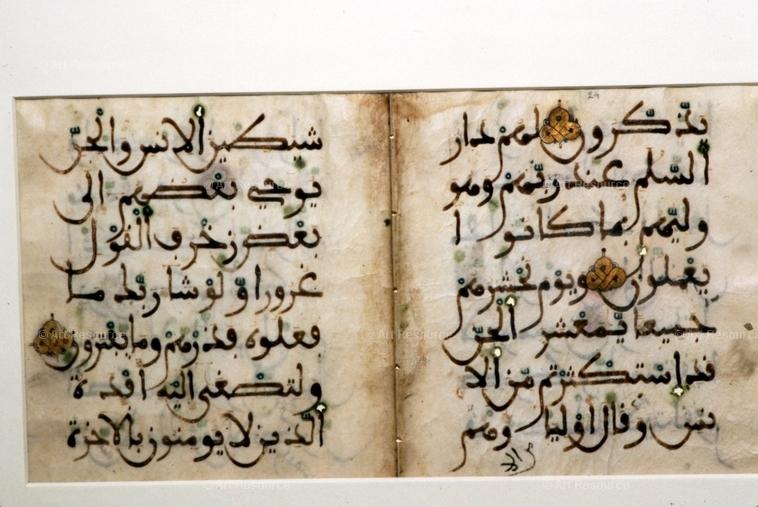 24
يذّكرون لهم دار
السّلم عند ربّهم وهو
وليّهم بما كانوا
يعملون ويوم نحشرهم
جميعا يمعشر الجنّ
قد استكثرتم من الا
نس وقال اوليا وهم
شيطين الانس والجنّ
يوحي بعضهم الى
بعض زخرف القول
غرورا ولو شا ربك ما
فعلوه فذرهم وما يفترون
ولتصغى اليه افدة
الذين لا يومنون بالاخرة
© Art Resource